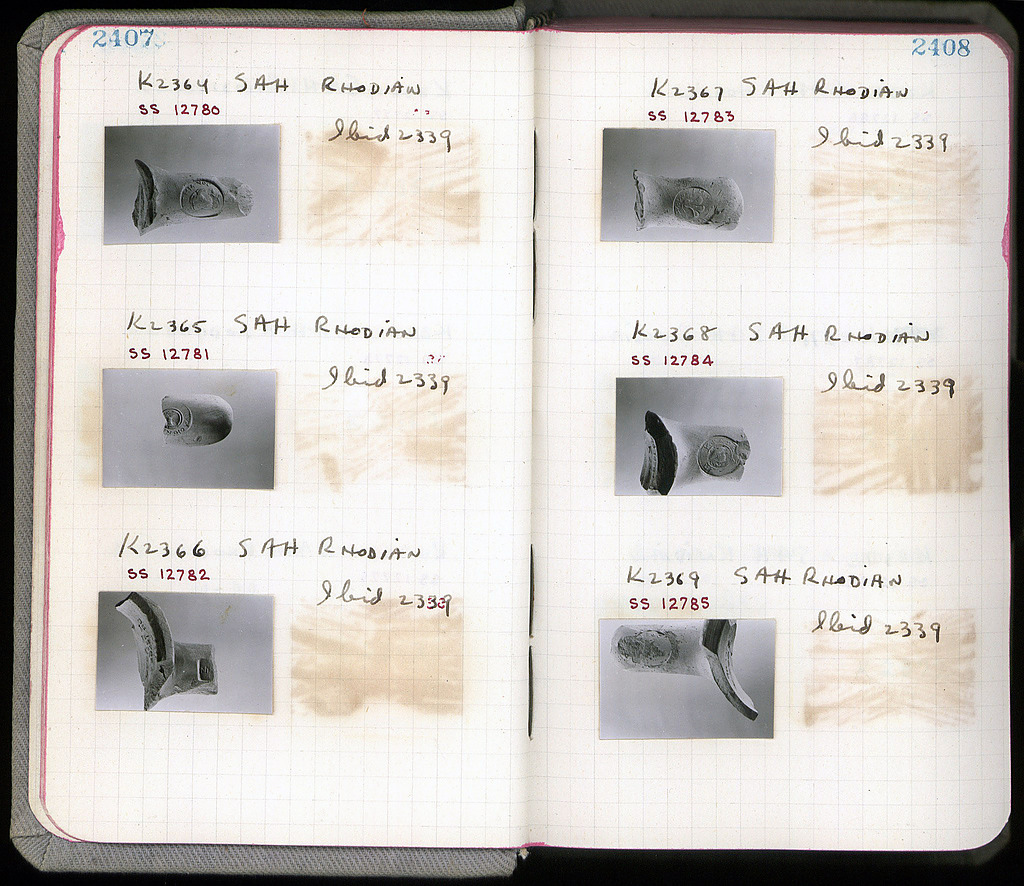 2407
K2364 SAH RHODIAN
SS 12780
Ibid 2339
K2365 SAH RHODIAN
SS 12781
Ibid 2339
K2366 SAH RHODIAN
SS 12782
Ibid 2339
2408
K2367 SAH RHODIAN
SS 12783
Ibid 2339
K2368 SAH RHODIAN
SS 12784
Ibid 2339
K2369 SAH RHODIAN
SS 12785
Ibid 2339